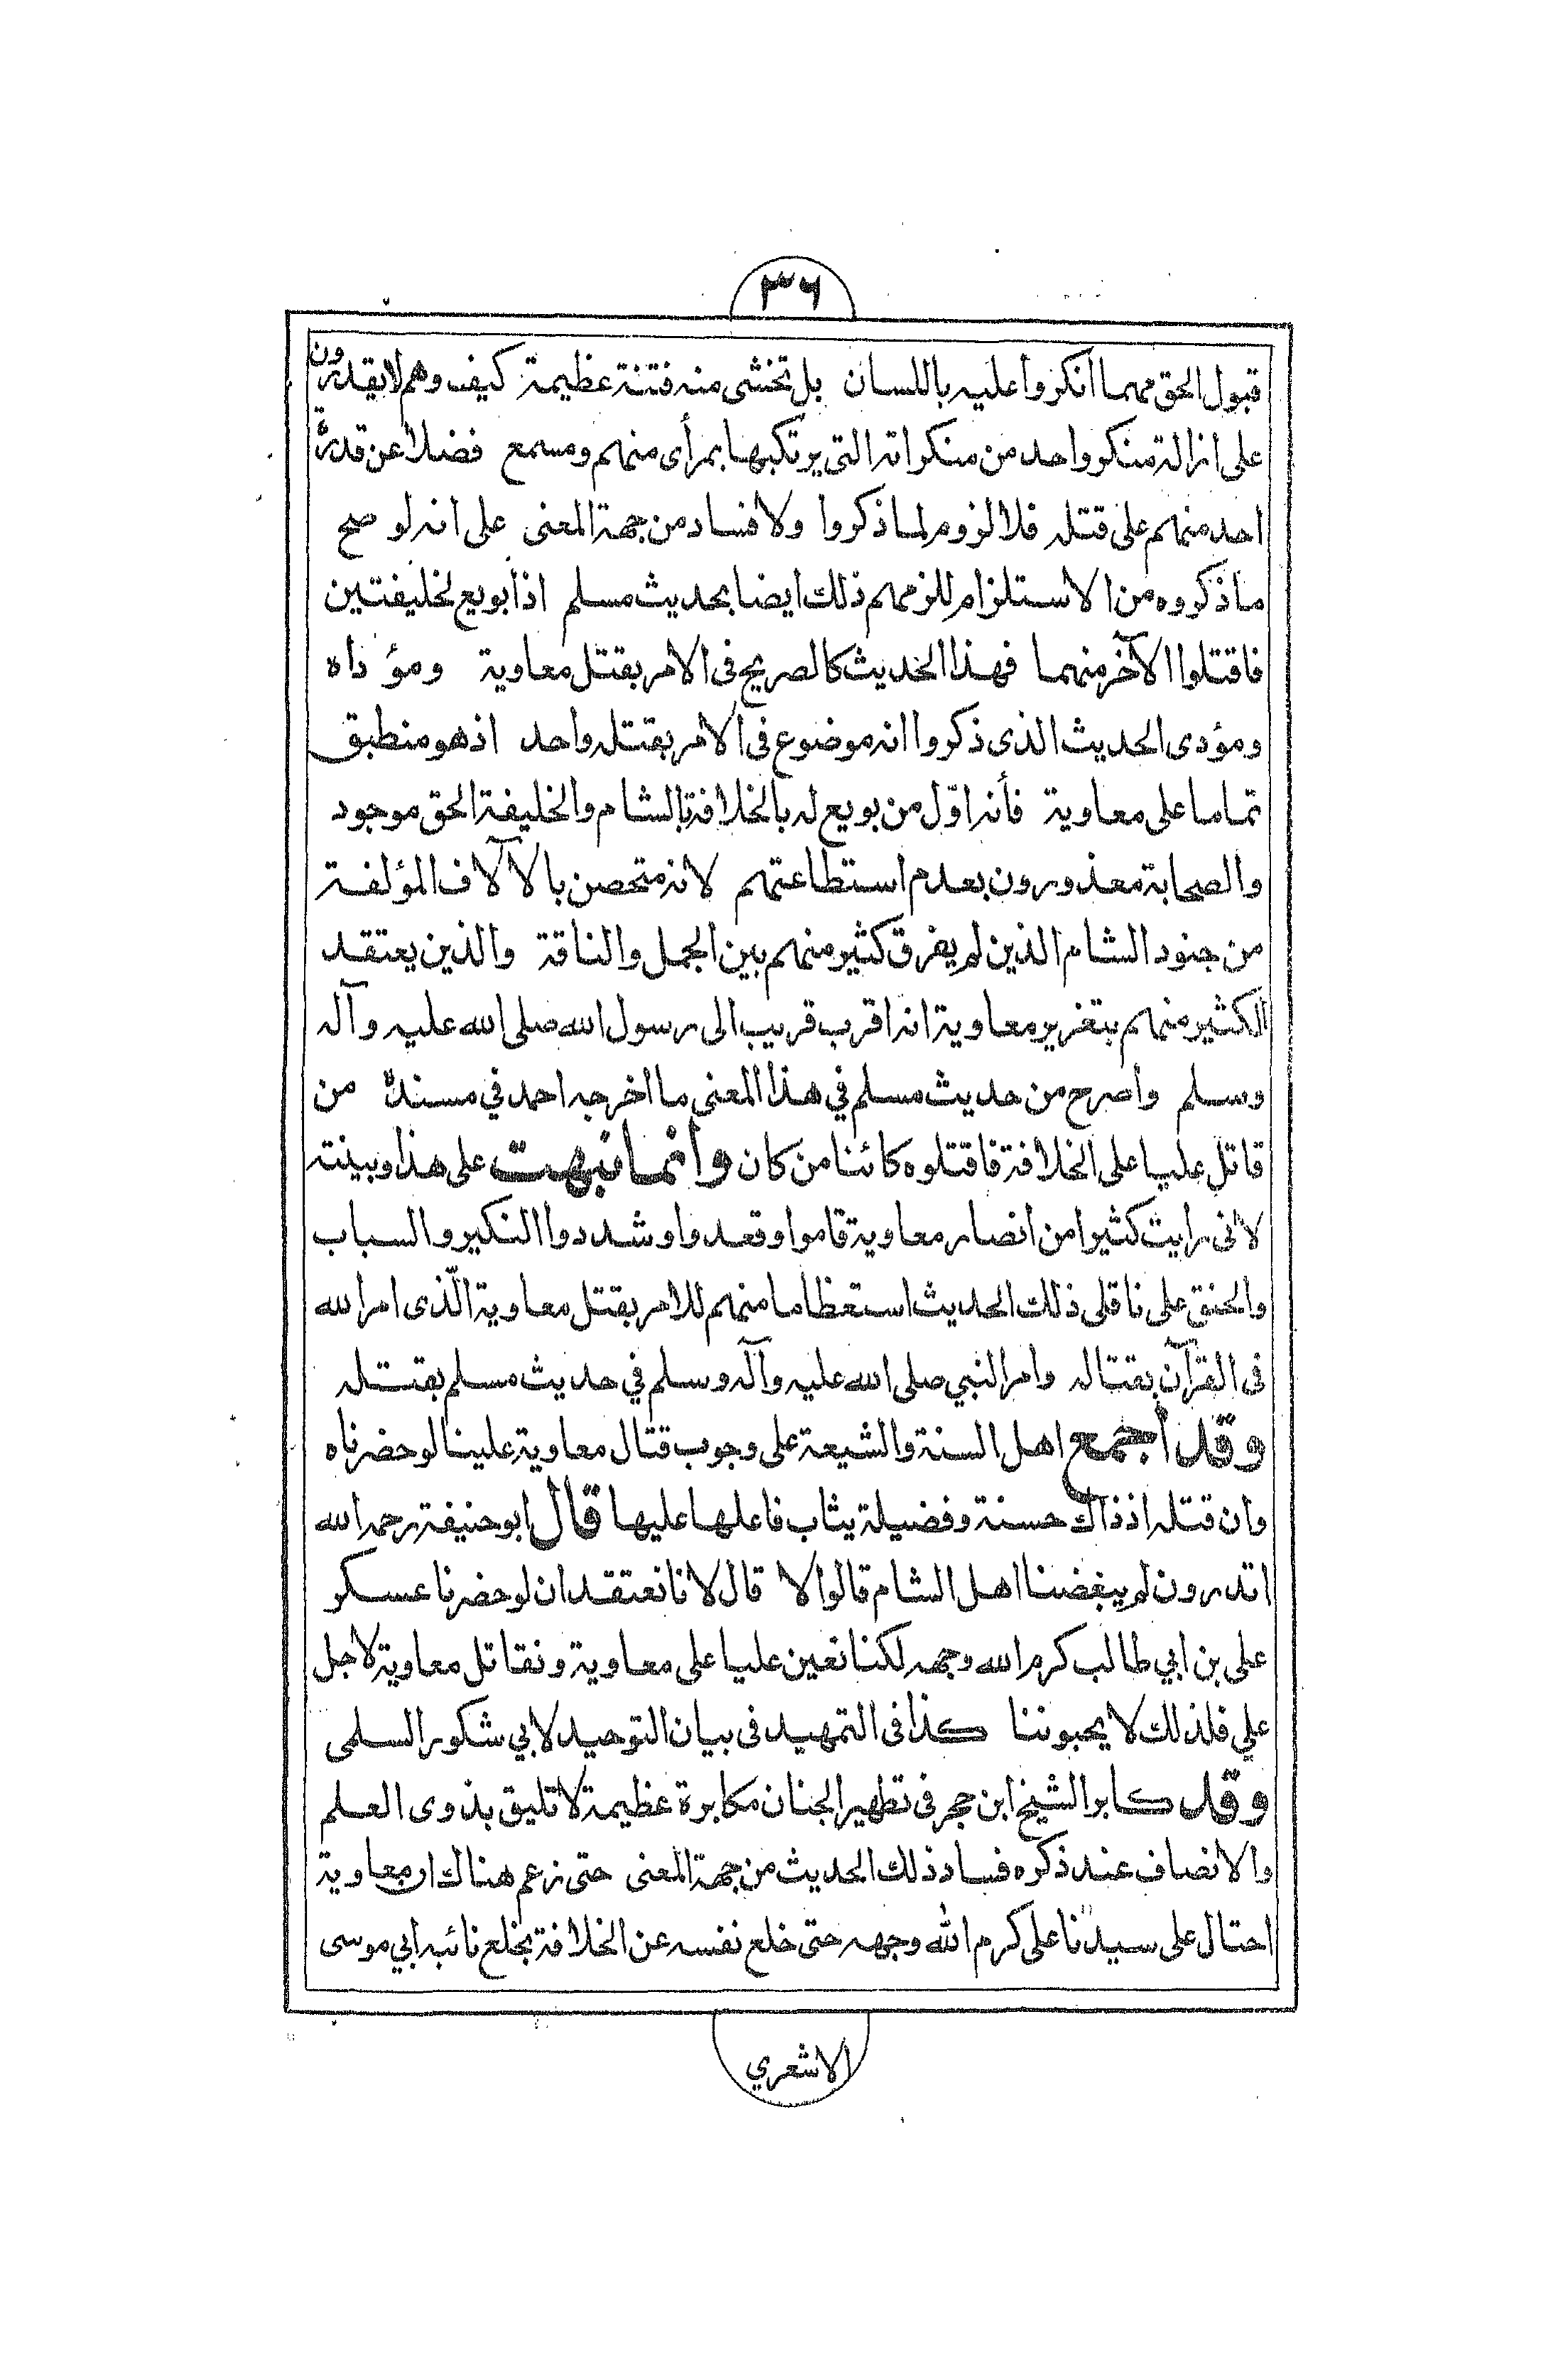 ٣٦
قبول الحق مهما انكروا عليه باللسان بل تخشى منه فتنة عظيمة كيف وهم لا يقدرون
على ازالة منكر واحد من منكراته التى يرتكبها بمرأى منهم ومسمع فضلا عن قدرة
احد منهم على قتله فلا لزوم لما ذكروا ولا فساد من جهة المعنى على انه لو صح
ما ذكروه من الاستلزام للزمهم ذلك ايضا بحديث مسلم اذا بويع لخليفتين
فاقتلوا الآخر منهما فهذا الحديث كالصريح فى الامر بقتل معاوية ومؤداه
ومؤدى الحديث الذى ذكروا انه موضوع فى الامر بقتله واحد اذ هو منطبق
تماما على معاوية فأنه اوّل من بويع له بالخلافة بالشام والخليفة الحق موجود
والصحابة معذورون بعدم استطاعتهم لانه متحصن بالآلاف المؤلفة
من جنود الشام الذين لم يفرق كثير منهم بين الجمل والناقة والذين يعتقد
الكثير منهم بتغرير معاوية انه اقرب قريب الى رسول الله صلى الله عليه وآله
وسلم واصرح من حديث مسلم في هذا المعنى ما اخرجه احمد في مسنده من
قاتل عليا على الخلافة فاقتلوه كائنا من كان وانما نبهت على هذا وبينته
لانى رايت كثيرا من انصار معاوية قاموا وقعدوا وشددوا النكير والسباب
والحنق على ناقلى ذلك الحديث استعظاما منهم للامر بقتل معاوية الّذى امر الله
فى القرآن بقتاله وامر النبي صلى الله عليه وآله وسلم في حديث مسلم بقتله
وقد أجمع اهل السنة والشيعة على وجوب قتال معاوية علينا لو حضرناه
وان قتله اذ ذاك حسنة وفضيلة يثاب فاعلها عليها قال ابو حنيفة رحمه الله
اتدرون لم يبغضنا اهل الشام قالوا لا قال لانا نعتقد ان لو حضرنا عسكر
على بن ابي طالب كرم الله وجهه لكنا نعين عليا على معاوية ونقاتل معاوية لاجل
علي فلذلك لا يحبوننا كذا فى التمهيد فى بيان التوحيد لابي شكور السلمى
وقد كابر الشيخ ابن حجر فى تطهير الجنان مكابرة عظيمة لا تليق بذوى العلم
والانصاف عند ذكره فساد ذلك الحديث من جهة المعنى حتى زعم هناك ان معاوية
احتال على سيدنا على كرم الله وجهه حتى خلع نفسه عن الخلافة بخلع نائبه ابي موسى
الاشعري